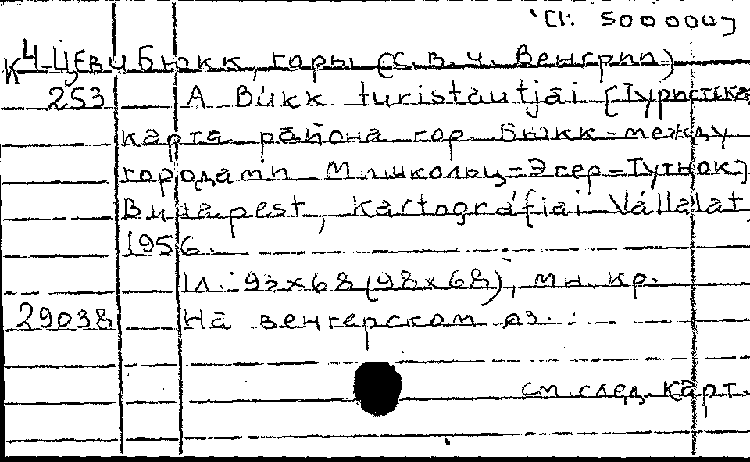 [1: 500000]
К 4-Цеви Бюкк, горы (С.в.ч. Венгрии)
253 A Bükk turistautjai [Туристска
карта района гор Бюкк между
городами Мишкольц=Эгер=Тутнок]
Budapest, Kartográfiai Vállalat,
1956.
1л.: 93х68 (98х68), мн. кр.
29038 На венгерском яз.
см. след. карт.